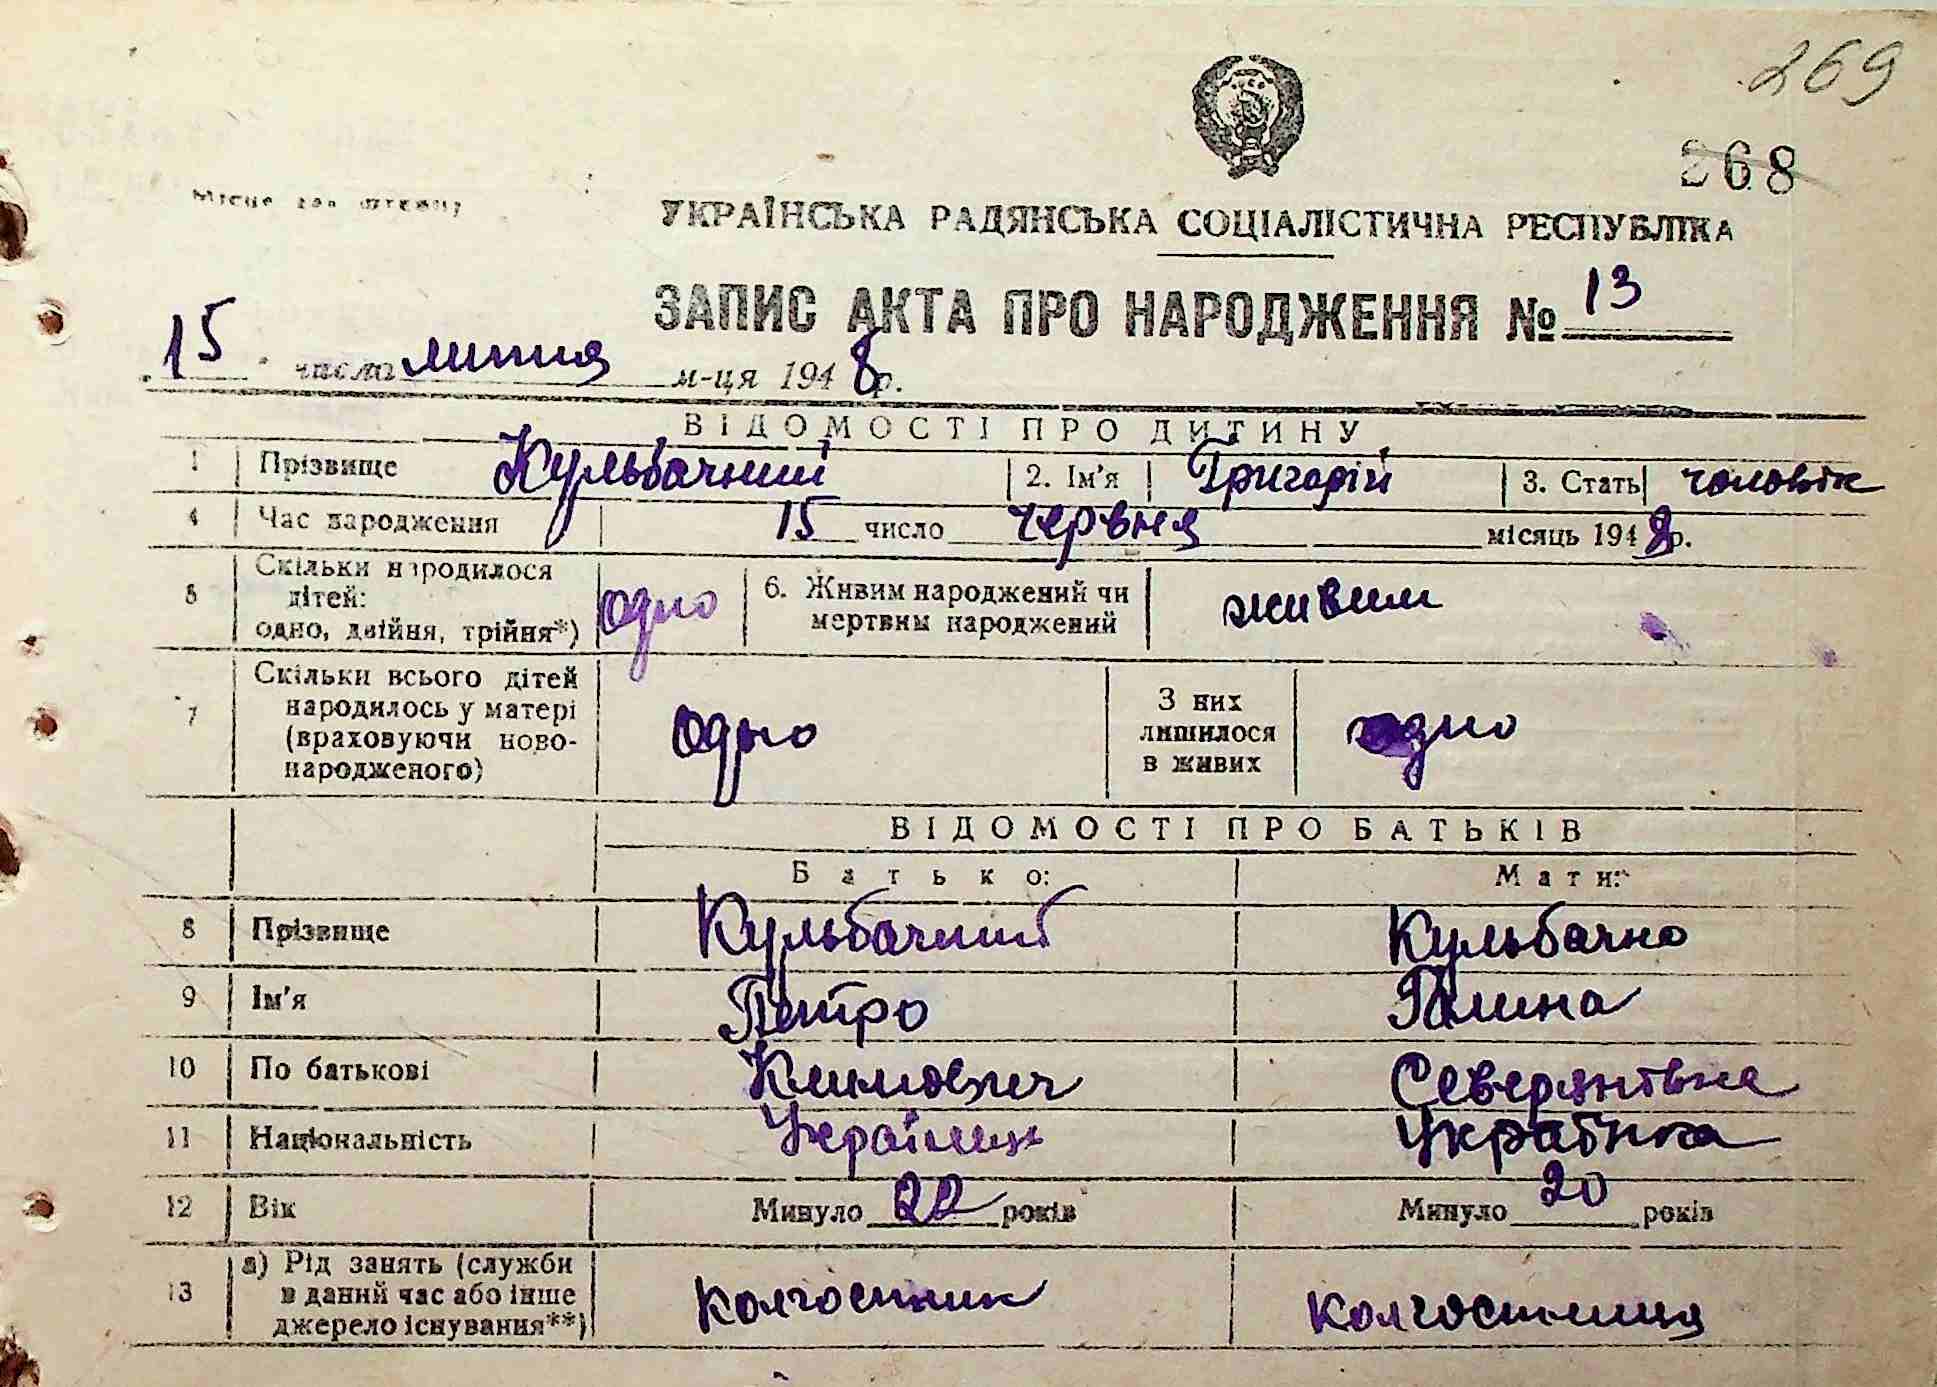 269
268
Місце для штампу
УКРАЇНСЬКА РАДЯНСЬКА СОЦІАЛІСТИЧНА РЕСПУБЛІКА
ЗАПИС АКТА ПРО НАРОДЖЕННЯ № 13
15 числа липня м-ця 1948 р.
ВІДОМОСТІ ПРО ДИТИНУ
1 Прізвище Кульбачний 2. Ім'я Григорій 3. Стать чоловік
4 Час народження 15 число червня місяць 1948 р.
5 Скільки народилося дітей: одно, двійня, трійня*) одно 6. Живим народжений чи мертвим народжений живим
7 Скільки всього дітей народилось у матері (враховуючи ново-народженого) одно З них лишилося в живих одно
ВІДОМОСТІ ПРО БАТЬКІВ
Батько: Мати:
8 Прізвище Кульбачний Кульбачно
9 Ім'я Петро Галина
10 По батькові Климович Северянівна
11 Національність Українец Українка
12 Вік Минуло 22 років Минуло 20 років
13 а) Рід занять (служби в даний час або інше джерело існування**) колгоспник колгоспниця